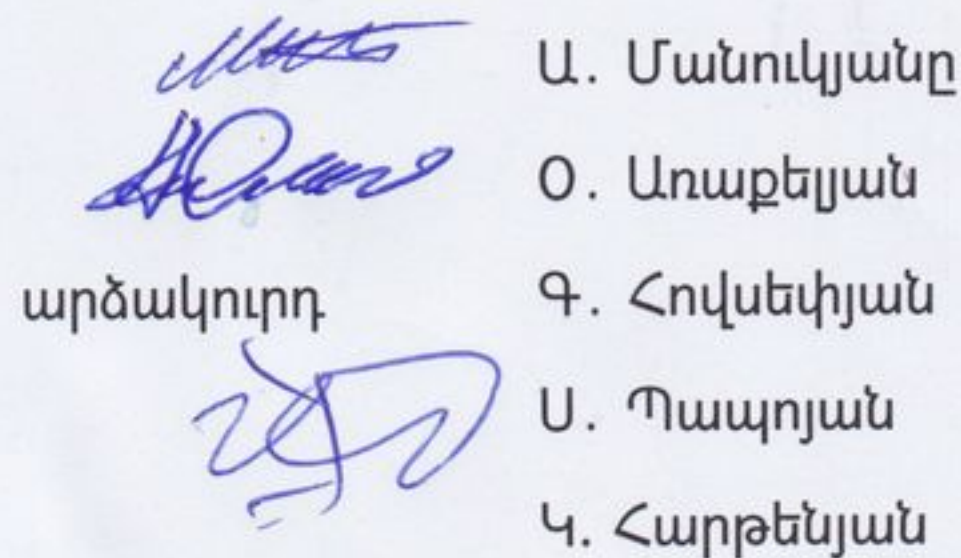 Ա. Մանուկյանը
Օ. Առաքելյան
արձակուրդ Գ. Հովսեփյան
Ս. Պապոյան
Կ. Հարթենյան